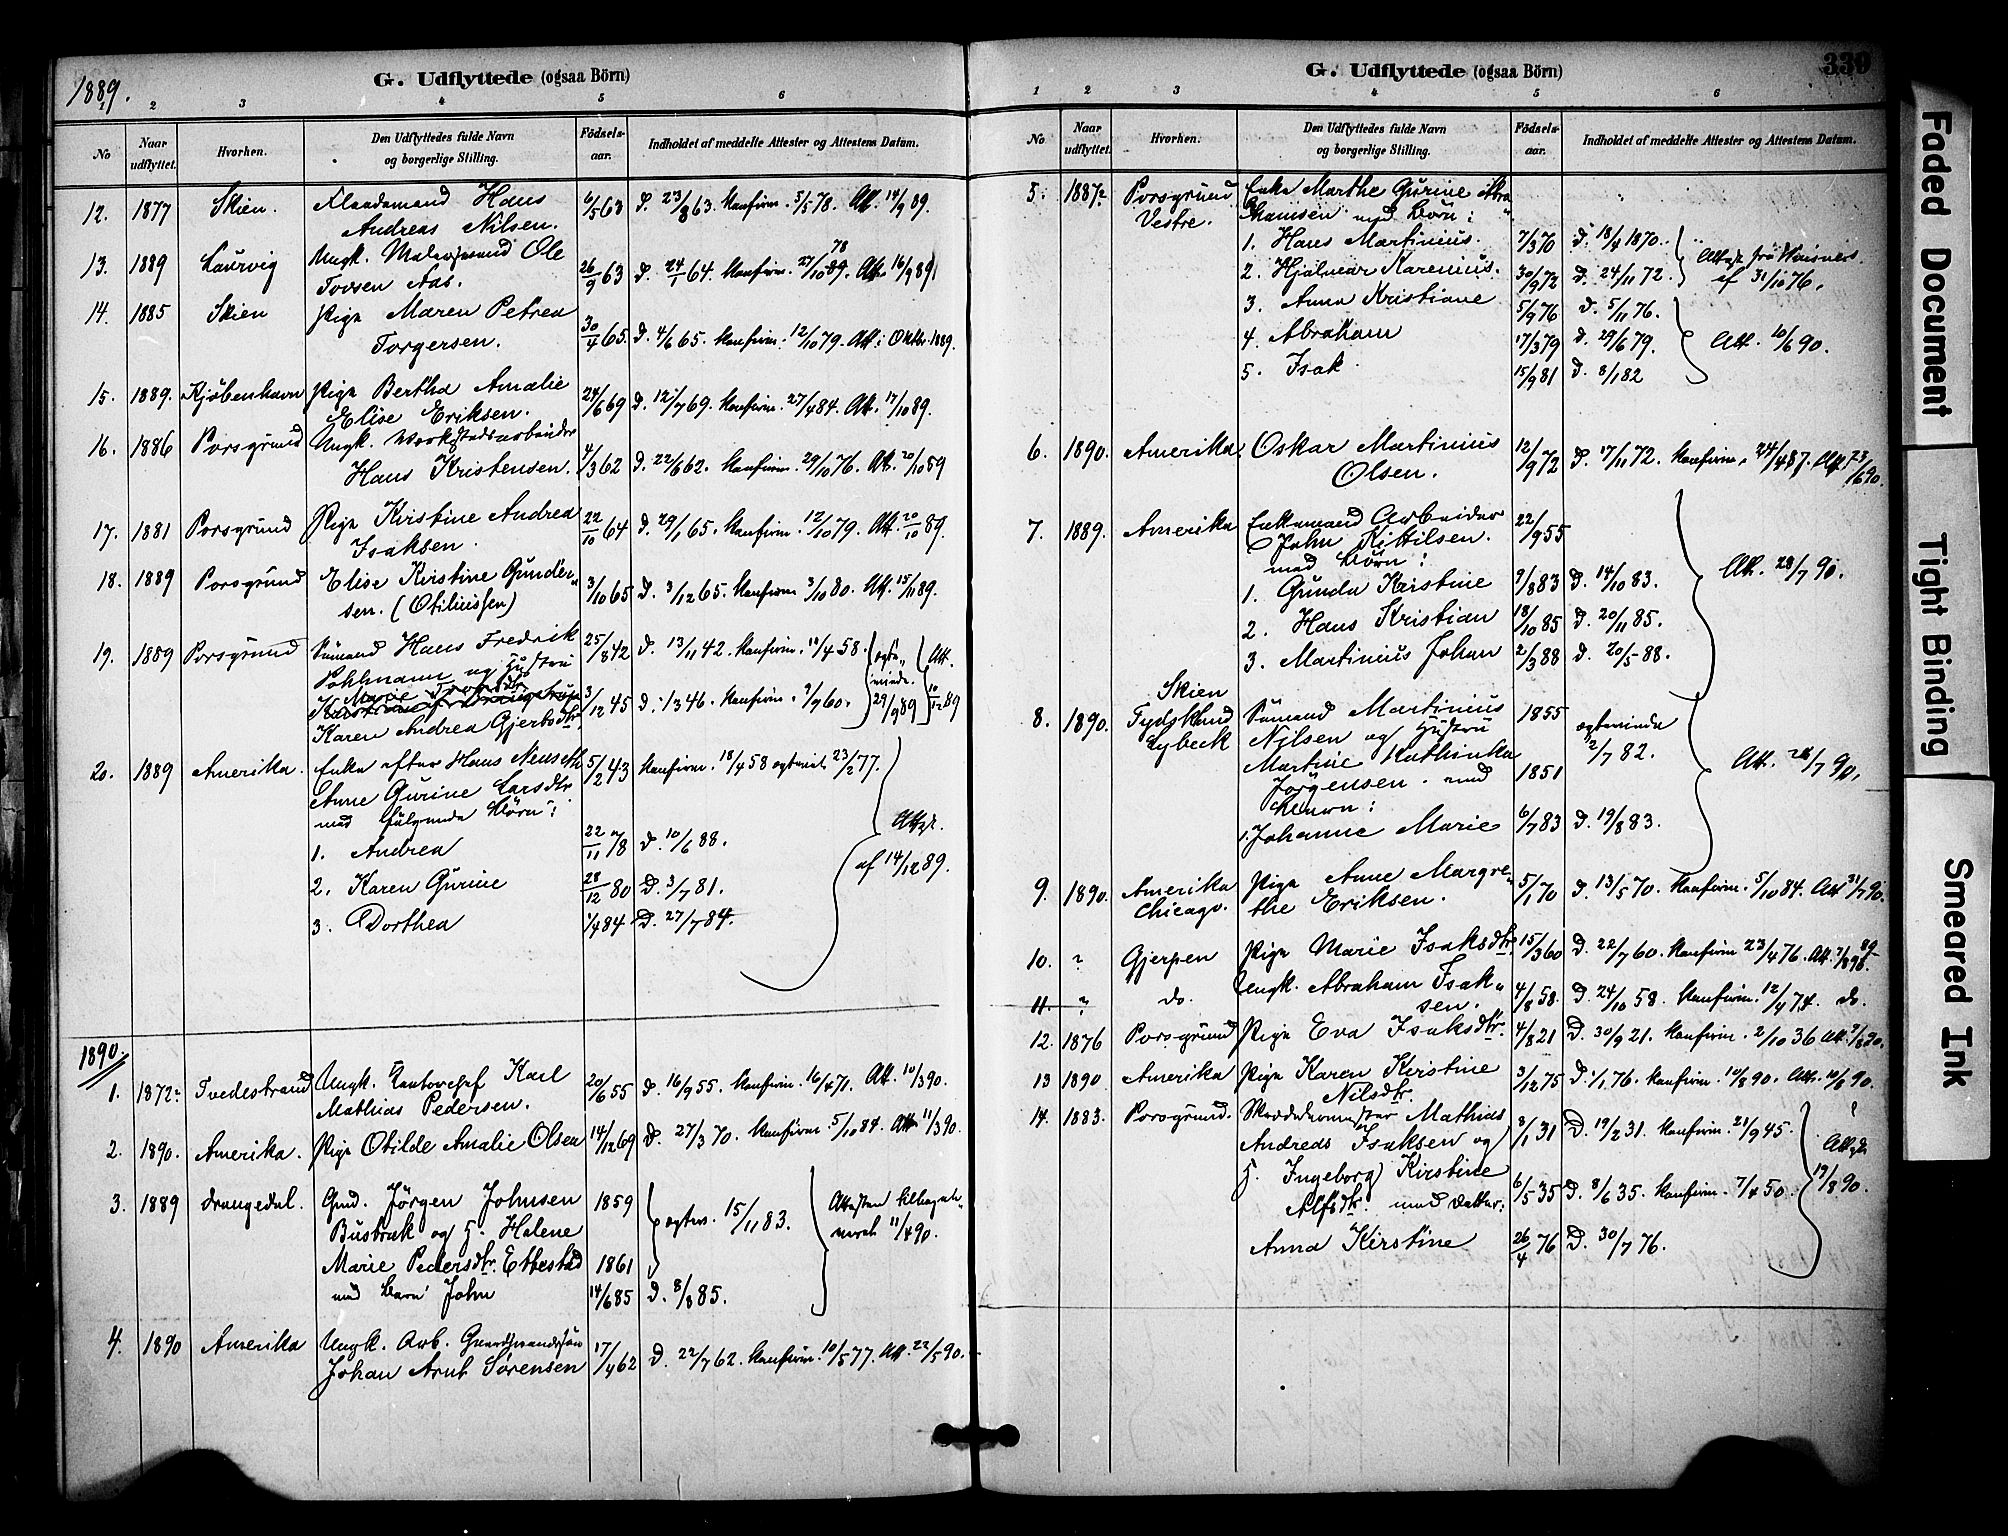 1889.
G. Udflyttede (ogsaa Börn)
1 2 3 4 5 6
No Naar udflyttet. Hvorhen. Den Udflyttedes fulde Navn og borgerlige Stilling. Födsels-aar. Indholdet af meddelte Attester og Attestens Datum.
12. 1877 Skien. Hans 6/5 63 D. 23/8 63. Konfirm. 5/5 78. Att. 14/9 89.
Andreas Nilsen.
13. 1889 Laurvig Ungk. Ole
Tovsen Aas. 26/9 63 D. 24/1 64. Konfirm. 27/10 78. Att. 16/9 89.
14. 1885 Skien Pige Maren Petrea
Torgersen. 30/4 65. D. 4/6 65. Konfirm. 12/10 79. Att. i Oktbr. 1889.
15. 1889. Kjøbenhavn Pige Bertha Amalie
Elise Eriksen. 24/6 69 D. 12/7 69. Konfirm. 27/4 84. Att. 17/10 89.
16. 1886 Porsgrund Ungk. Værkstedsarbeider
Hans Kristensen. 4/3 62 D. 22/6 62. Konfirm. 29/10 76. Att. 20/10 89
17. 1881 Porsgrund Pige Kristine Andrea
Isaksen. 22/10 64 D. 29/1 65. Konfirm. 12/10 79. Att. 20/10 89.
18. 1889 Porsgrund Elise Kristine Gunder-
sen. (Otiliussen) 3/10 65 D. 3/12 65. Konfirm. 3/10 80. Att. 15/11 89.
19. 1889 Porsgrund Sømand Hans Fredrik 25/8 42 D. 13/11 42. Konfirm. 11/4 58. Att.
Pohlmann og Hustru
29/9 89 10/12 89
Karen Andrea Gjertsdtr. 3/12 45 D. 1/3 46. Konfirm. 9/7 60.
20. 1889 Amerika. Enke efter Hans
Anne Gurine Larsdtr 5/2 43 Konfirm. 18/4 58 egteviet 23/2 77.
med følgende Børn:
1. Andrea 22/11 78 D. 10/6 88. Att.
2. Karen Gurine 28/12 80 D. 3/7 81. af 14/12 89.
3. Dorthea 1/4 84 D. 27/7 84.
1890.
1. 1872? Tvedestrand Ungk. Kontorchef Karl
Mathias Pedersen. 20/6 55 D. 16/9 55. Konfirm. 16/4 71. Att. 10/3 90.
2. 1890. Amerika. Pige Otilde Amalie Olsen 14/12 69 D. 27/3 70. Konfirm. 5/10 84. Att. 11/3 90.
3. 1889 Drangedal. Gmd. Jörgen Johnsen 1859
Busbrak og H. Helene egtev. 15/11 83. Attesten tilbagele-
veret 11/4 90.
Marie Pedersdtr. Ettestad 1861
med Barn John 14/6 85 D. 8/8 85.
4. 1890 Amerika Ungk. Arb. Gaardmandssøn
Johan Arnt Sørensen 17/4 62 D. 22/7 62. Konfirm. 10/5 77. Att. 22/5 90.
339
G. Udflyttede (ogsaa Börn)
1 2 3 4 5 6
No Naar udflyttet. Hvorhen. Den Udflyttedes fulde Navn og borgerlige Stilling. Födsels-aar. Indholdet af meddelte Attester og Attestens Datum.
5. 1887? Porsgrund Enke Marthe Gurine Abra-
Vestre. hamsen med Børn:
1. Hans Martinius. 7/3 70 D. 18/4 1870.
2. Hjalmar Karenius. 30/9 72 D. 24/11 72. af 31/10 76.
3. Anna Kristiane 5/9 76 D. 5/11 76.
4. Abraham 17/3 79 D. 29/6 79. Att. 10/6 90.
5. Isak. 15/9 81 D. 8/1 82
6. 1890. Amerika. Oskar Martinius
Olsen. 12/9 72 D. 17/11 72. Konfirm. 24/4 87. Att. 23/6 90.
7. 1889. Amerika Enkemand Arbeider
John Kittilsen. 22/9 55
med Børn:
1. Gunda Kristine 9/8 83 D. 14/10 83. Att. 28/7 90.
2. Hans Kristian 18/10 85 D. 20/11 85.
3. Martinius Johan 2/3 88 D. 20/5 88.
8. 1890. Skien Tydskland Lybeck Sømand Martinius 1855 egteviede
Nilsen og Hustru 2/7 82.
Martine Kathinka
Jörgensen. med 1851 Att. 28/7 90.
Barn:
1. Johanne Marie 6/7 83 D. 19/8 83.
9. 1890. Amerika Chicago. Pige Anne Margre-
the Eriksen. 5/1 70 D. 13/5 70. Konfirm. 5/10 84. Att. 31/7 90.
10. ? Gjerpen Pige Marie Isaksdtr. 15/3 60 D. 22/7 60. Konfirm. 23/4 76. Att.
11. ? do. Ungk. Abraham Isak-
sen. 4/8 58. D. 24/10 58. Konfirm. 12/4 74. do.
12. 1876 Porsgrund Pige Eva Isaksdtr. 4/8 21 D. 30/9 21. Konfirm. 2/10 36 Att. 7/8 90.
13 1890 Amerika Pige Karen Kirstine
Nilsdtr. 3/12 75 D. 1/1 76. Konfirm. 10/8 90. Att. 10/8 90.
14. 1883. Porsgrund. Skræddermester Mathias
Andreas Isaksen og 8/1 31 D. 19/2 31. Konfirm. 21/9 45.
H. Ingeborg Kirstine Att.
Alfsdtr. med Datter: 6/5 35 D. 8/6 35. Konfirm. 7/4 50. 19/8 90.
Anna Kirstine 26/4 76 D. 30/7 76.
Faded Document
Tight Binding
Smeared Ink